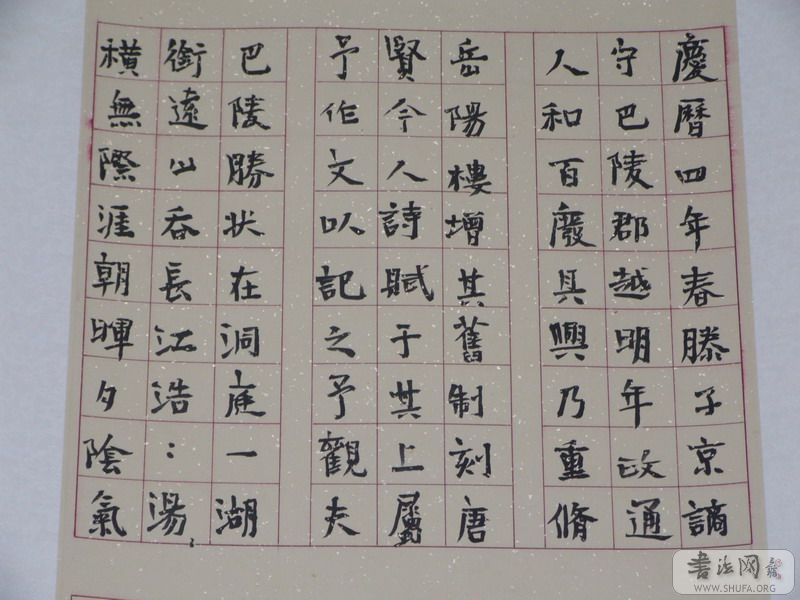 慶曆四年春滕子京謫
守巴陵郡越明年政通
人和百廢具興乃重脩
岳陽樓增其舊制刻唐
賢今人詩賦于其上屬
予作文以記之予觀夫
巴陵勝狀在洞庭一湖
銜遠山吞長江浩：湯：
橫無際涯朝暉夕陰氣
书法网
WWW.SHUFA.ORG